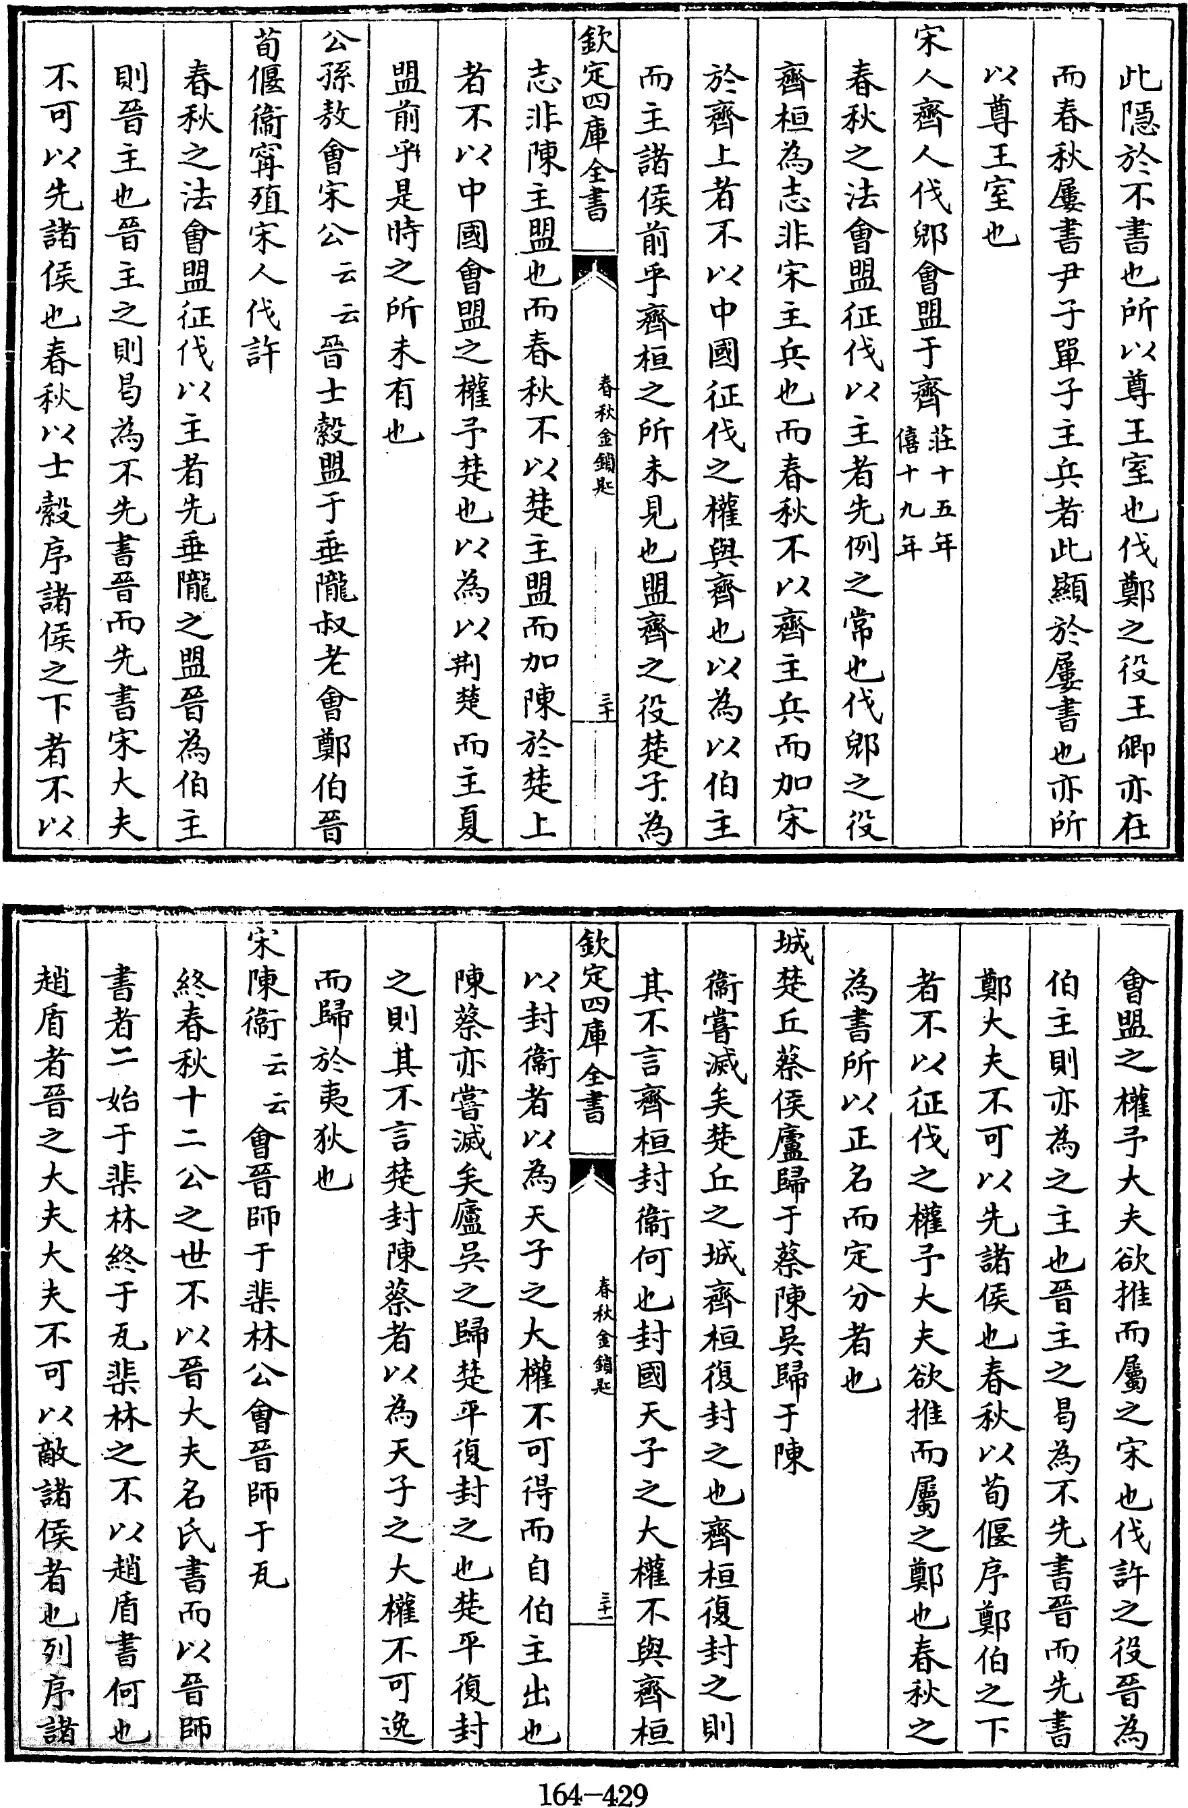 此隱於不書也所以尊王室也伐鄭之役王卿亦在
而春秋屢書尹子單子主兵者此顯於屢書也亦所
以尊王室也
宋人齊人伐郳會盟于齊莊十五年僖十九年
春秋之法會盟征伐以主者先例之常也伐郳之役
齊桓為志非宋主兵也而春秋不以齊主兵而加宋
於齊上者不以中國征伐之權與齊也以為以伯主
而主諸侯前乎齊桓之所未見也盟齊之役楚子為
欽定四庫全書
春秋金鎖匙
三十
志非陳主盟也而春秋不以楚主盟而加陳於楚上
者不以中國會盟之權予楚也以為以荆楚而主夏
盟前乎是時之所未有也
公孫敖會宋公云云晉士縠盟于垂隴叔老會鄭伯晉
荀偃衞寗殖宋人伐許
春秋之法會盟征伐以主者先垂隴之盟晉為伯主
則晉主也晉主之則曷為不先書晉而先書宋大夫
不可以先諸侯也春秋以士縠序諸侯之下者不以
會盟之權予大夫欲推而屬之宋也伐許之役晉為
伯主則亦為之主也晉主之曷為不先書晉而先書
鄭大夫不可以先諸侯也春秋以荀偃序鄭伯之下
者不以征伐之權予大夫欲推而屬之鄭也春秋之
為書所以正名而定分者也
城楚丘蔡侯廬歸于蔡陳吳歸于陳
衞嘗滅矣楚丘之城齊桓復封之也齊桓復封之則
其不言齊桓封衞何也封國天子之大權不與齊桓
欽定四庫全書
春秋金鎖匙
三十一
以封衞者以為天子之大權不可得而自伯主出也
陳蔡亦嘗滅矣廬吳之歸楚平復封之也楚平復封
之則其不言楚封陳蔡者以為天子之大權不可逸
而歸於夷狄也
宋陳衞云云會晉師于棐林公會晉師于瓦
終春秋十二公之世不以晉大夫名氏書而以晉師
書者二始于棐林終于瓦棐林之不以趙盾書何也
趙盾者晉之大夫大夫不可以敵諸侯者也列序諸
164-429